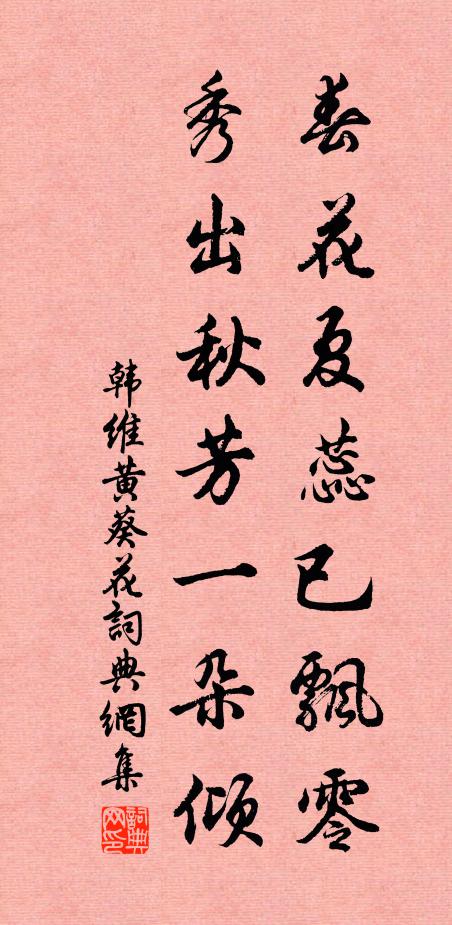 春花夏蕊已飘零
秀出秋芳一朵倾
韩维黄葵花詞典網集
詞典网印